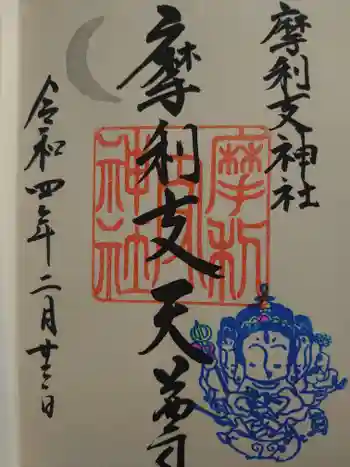 摩利支神社
摩利支天尊
摩利支神社
令和四年二月廿二日